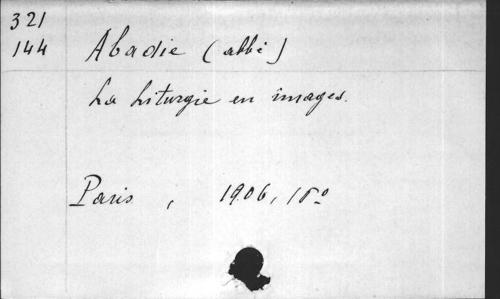 321
144
Abadie (abbé)
La Liturgie en images.
Paris, 1906, 18º